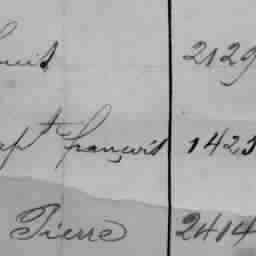 2129
apt françois 1425
Pierre 2414